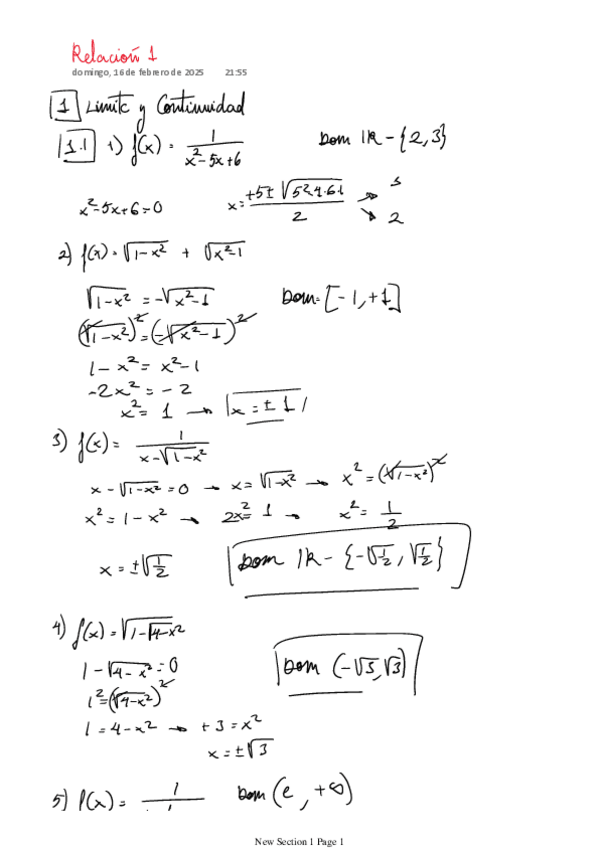 Relación 1
domingo, 16 de febrero de 2025 21:55
1 Limite y Continuidad
1.1 1) f(x) = 1/(x²-5x+6) Dom IR - {2,3}
x²-5x+6=0 x = (+5±√(5²-4·6·1))/2 → 3 → 2
2) f(x) = √(1-x²) + √(x²-1)
√(1-x²) = -√(x²-1) Dom = [-1,+1]
(√(1-x²))² = (-√(x²-1))²
1-x² = x²-1
-2x² = -2
x² = 1 → x = ± 1
3) f(x) = 1/(x-√(1-x²))
x - √(1-x²) = 0 → x = √(1-x²) → x² = (√(1-x²))²
x² = 1-x² → 2x² = 1 → x² = 1/2
x = ±√(1/2) Dom IR - {-√(1/2), √(1/2)}
4) f(x) = √(1-√(4-x²))
1 - √(4-x²) = 0 Dom (-√3,√3)
1² = (√(4-x²))²
1 = 4-x² → +3 = x²
x = ±√3
5) f(x) = 1/ Dom (e, +∞)
New Section 1 Page 1